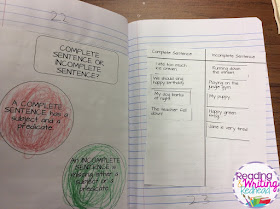 22
COMPLETE
SENTENCE OR
INCOMPLETE
SENTENCE?
A COMPLETE
SENTENCE has a
subject and a
predicate.
An INCOMPLETE
SENTENCE is
missing either a
subject or a
predicate.
Complete Sentence
Incomplete Sentence
I ate too much
ice cream.
We should sing
happy birthday.
My dog barks
at night.
The teacher sat
down.
Running down
the street.
Playing on the
jungle gym.
My puppy.
Happy green
frog.
at very time.
Reading
Writing
Redhead